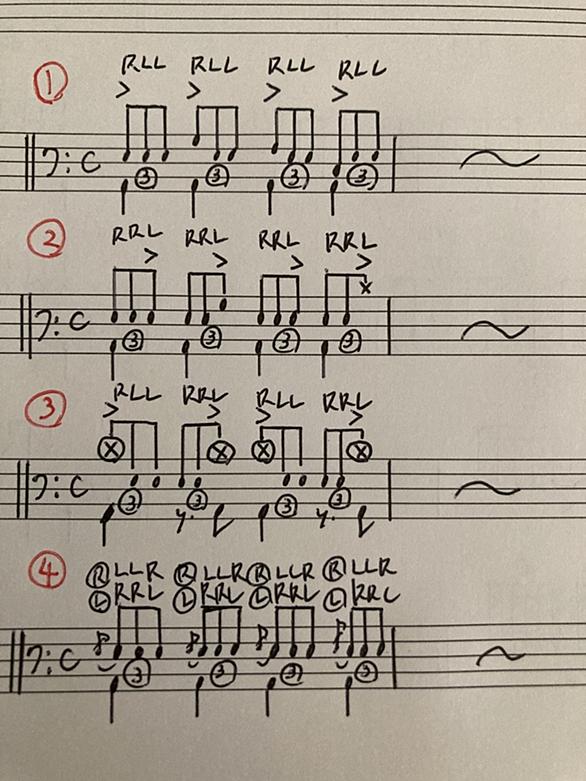 ① RLL RLL RLL RLL
> > > >
C 3 3 3 3
② RRL RRL RRL RRL
> > > >
C 3 3 3 3
③ RLL RRL RLL RRL
> > > >
C 3 3 3 3
④ Ⓡ LLR Ⓡ LLR Ⓡ LLR Ⓡ LLR
Ⓛ RRL Ⓛ RRL Ⓛ RRL Ⓛ RRL
C 3 3 3 3